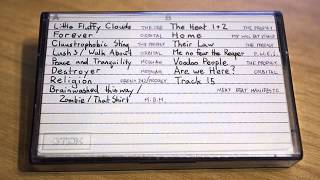 Little Fluffy Clouds THE ORB
Forever ORBITAL
Claustrophobic Sting THE PRODIGY
Lush 3 / Walk About ORBITAL
Peace and Tranquility
Destroyer
Religion
Brainwashed this way /
Zombie / That Shirt M.B.M.
The Heat 1+2 THE PRODIGY
Home
Their Law THE PRODIGY
Me no Fear the Reaper P.W.E.I.
Voodoo People THE PRODIGY
Are we Here? ORBITAL
Track 15
MEAT BEAT MANIFESTO
TDK